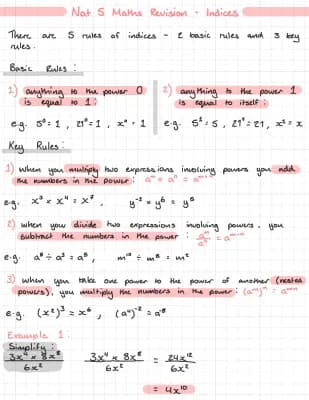 Nat 5 Maths Revision - Indices
There are 5 rules of indices - 2 basic rules and 3 key
rules.
Basic Rules:
1) anything to the power 0
is equal to 1:
e.g. 5⁰ = 1, 21⁰ = 1, x⁰ = 1
2) anything to the power 1
is equal to itself:
e.g. 5¹ = 5, 21¹ = 21, x¹ = x
Key Rules:
1) When you multiply two expressions involving powers you add
the numbers in the power: aᵐ × aⁿ = aᵐ⁺ⁿ
e.g. x³ × x⁴ = x⁷, y⁻² × y⁶ = y⁴
2) When you divide two expressions involving powers, you
subtract the numbers in the power: aᵐ/aⁿ = aᵐ⁻ⁿ
e.g. ÷ = , m¹⁰ ÷ m⁸ = m²
3) When you take one power to the power of another (nested
powers), you multiply the numbers in the power: (aᵐ)ⁿ = aᵐⁿ
e.g. (x²)³ = x⁶, (a⁴)⁻² = a⁻⁸
Example 1:
Simplify:
3x⁴ × 8x⁸ / 6x²
3x⁴ × 8x⁸ / 6x² = 24x¹² / 6x²
= 4x¹⁰